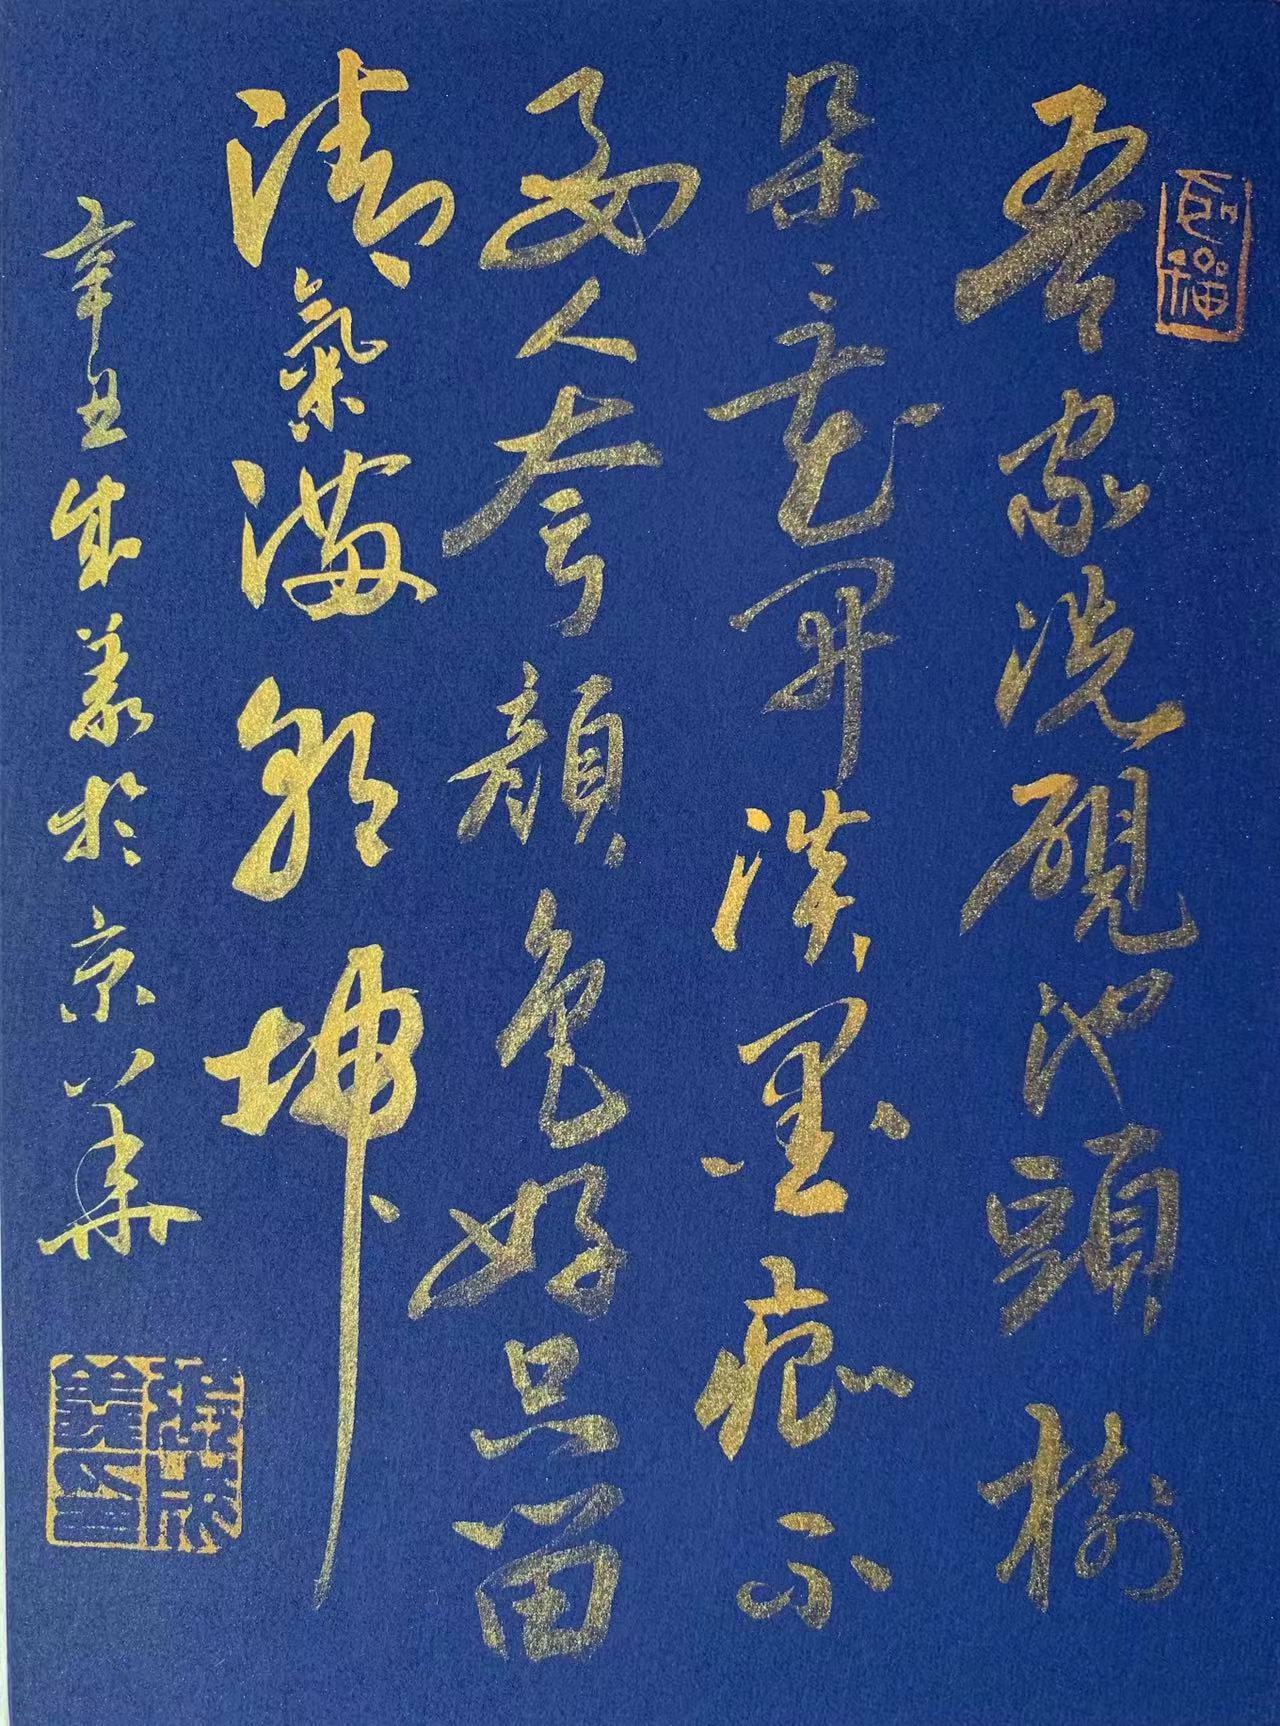 吾家洗硯池頭樹
朵々花開淡墨痕不
要人夸顏色好只留
清氣滿乾坤
辛丑成義於京華